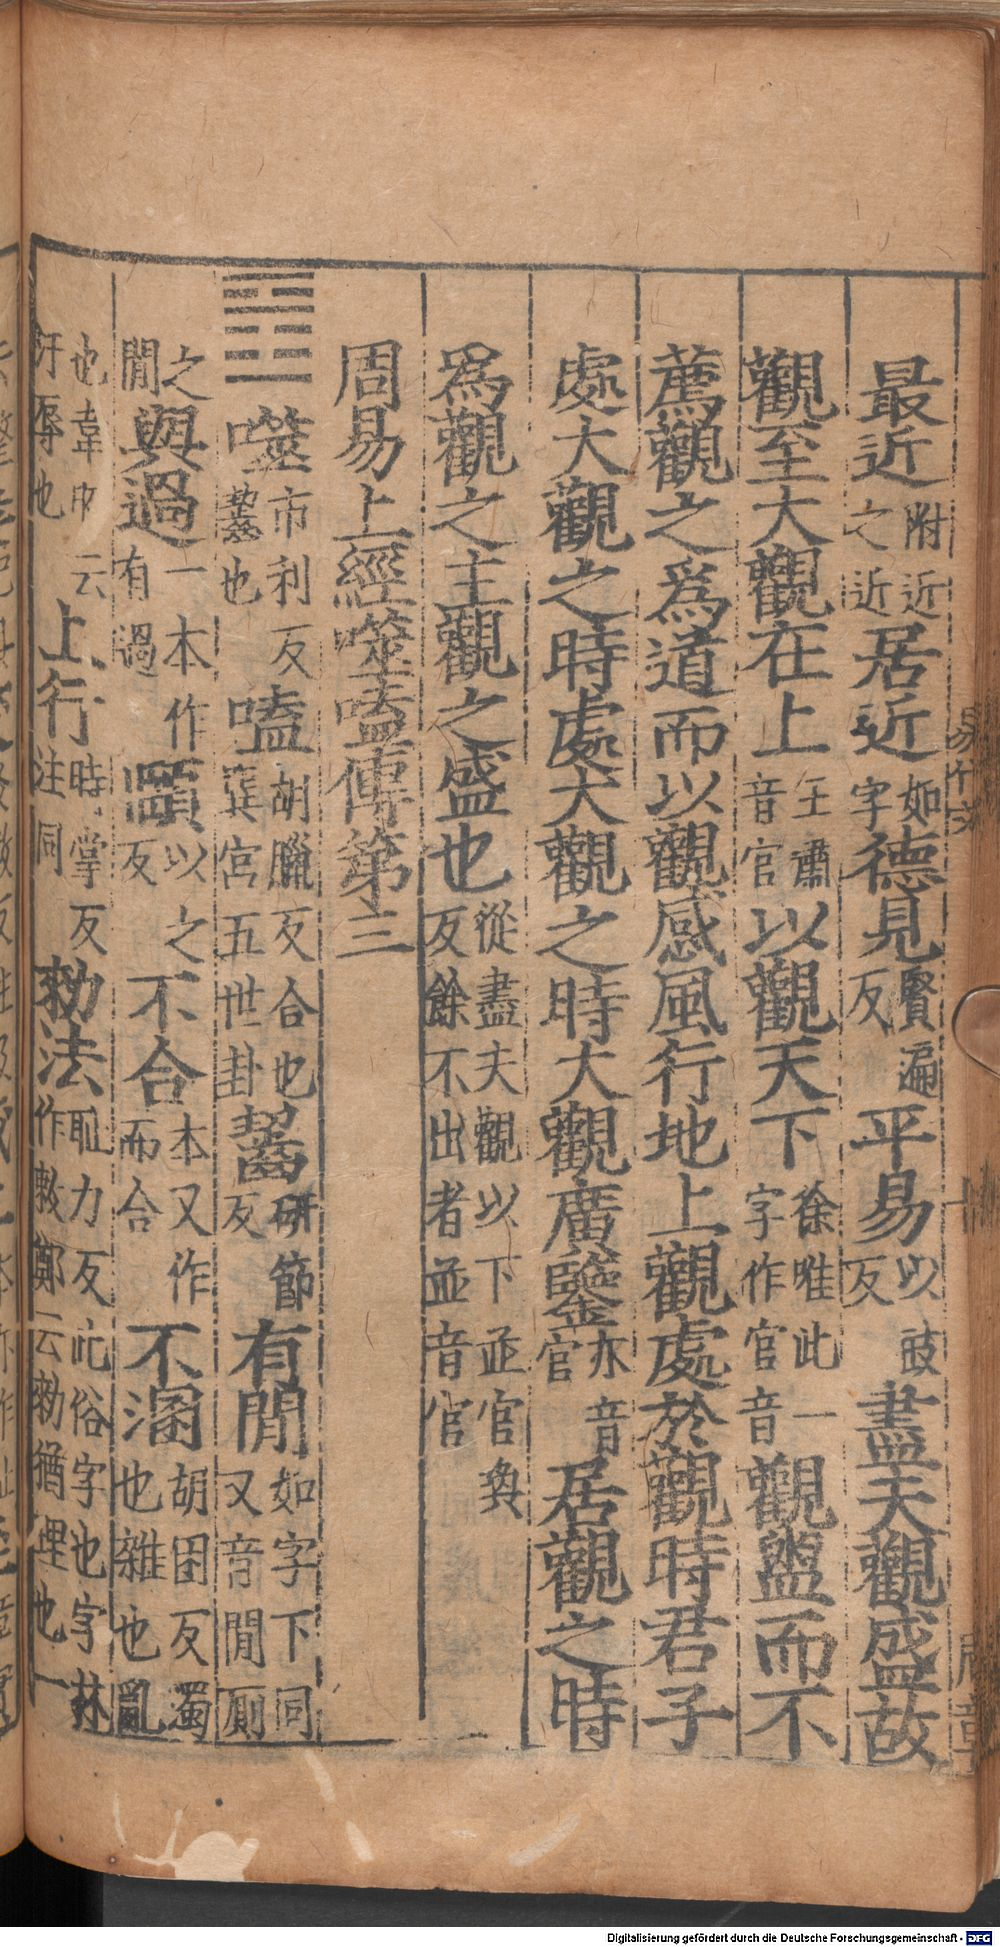 最近附近之近居近如字德見賢遍反平易以豉反盡夫觀盛故
觀至大觀在上王肅音官以觀天下徐唯此一字作官音觀盥而不
薦觀之爲道而以觀感風行地上觀處於觀時君子
處大觀之時處大觀之時大觀廣鑒亦音官居觀之時
爲觀之主觀之盛也從盡夫觀以下並官奐反餘不出者並音官
周易上經噬嗑傳第三
䷔噬市利反齧也嗑胡臘反合也巽宮五世卦齧研節反有閒如字下同又音閒厠
之閒與過一本作有過頤以之反不合本又作而合不溷胡困反濁也雜也亂
也韋昭云汙辱也上行時掌反注同勑法恥力反此俗字也字林作敕鄭云勑猶理也一
易釋文
十
Digitalisierung gefördert durch die Deutsche Forschungsgemeinschaft - DFG